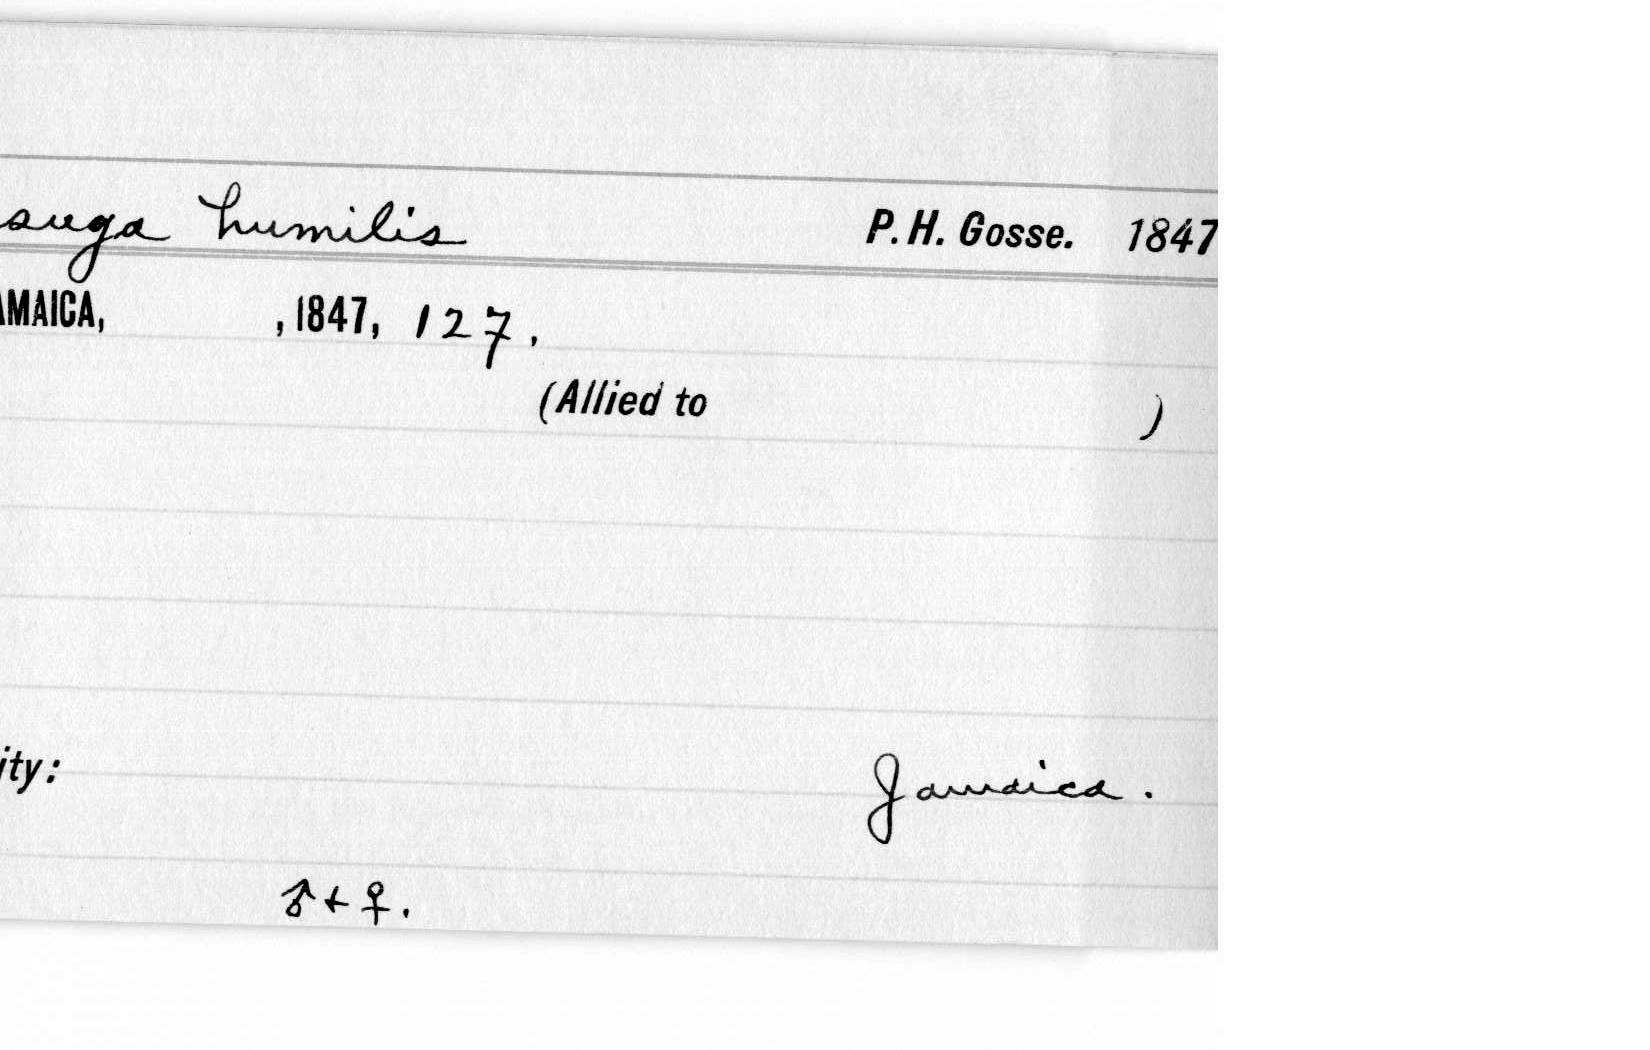 suga humilis P. H. Gosse. 1847
AMAICA, , 1847, 127.
(Allied to )
ity: Jamaica.
♂ + ♀.